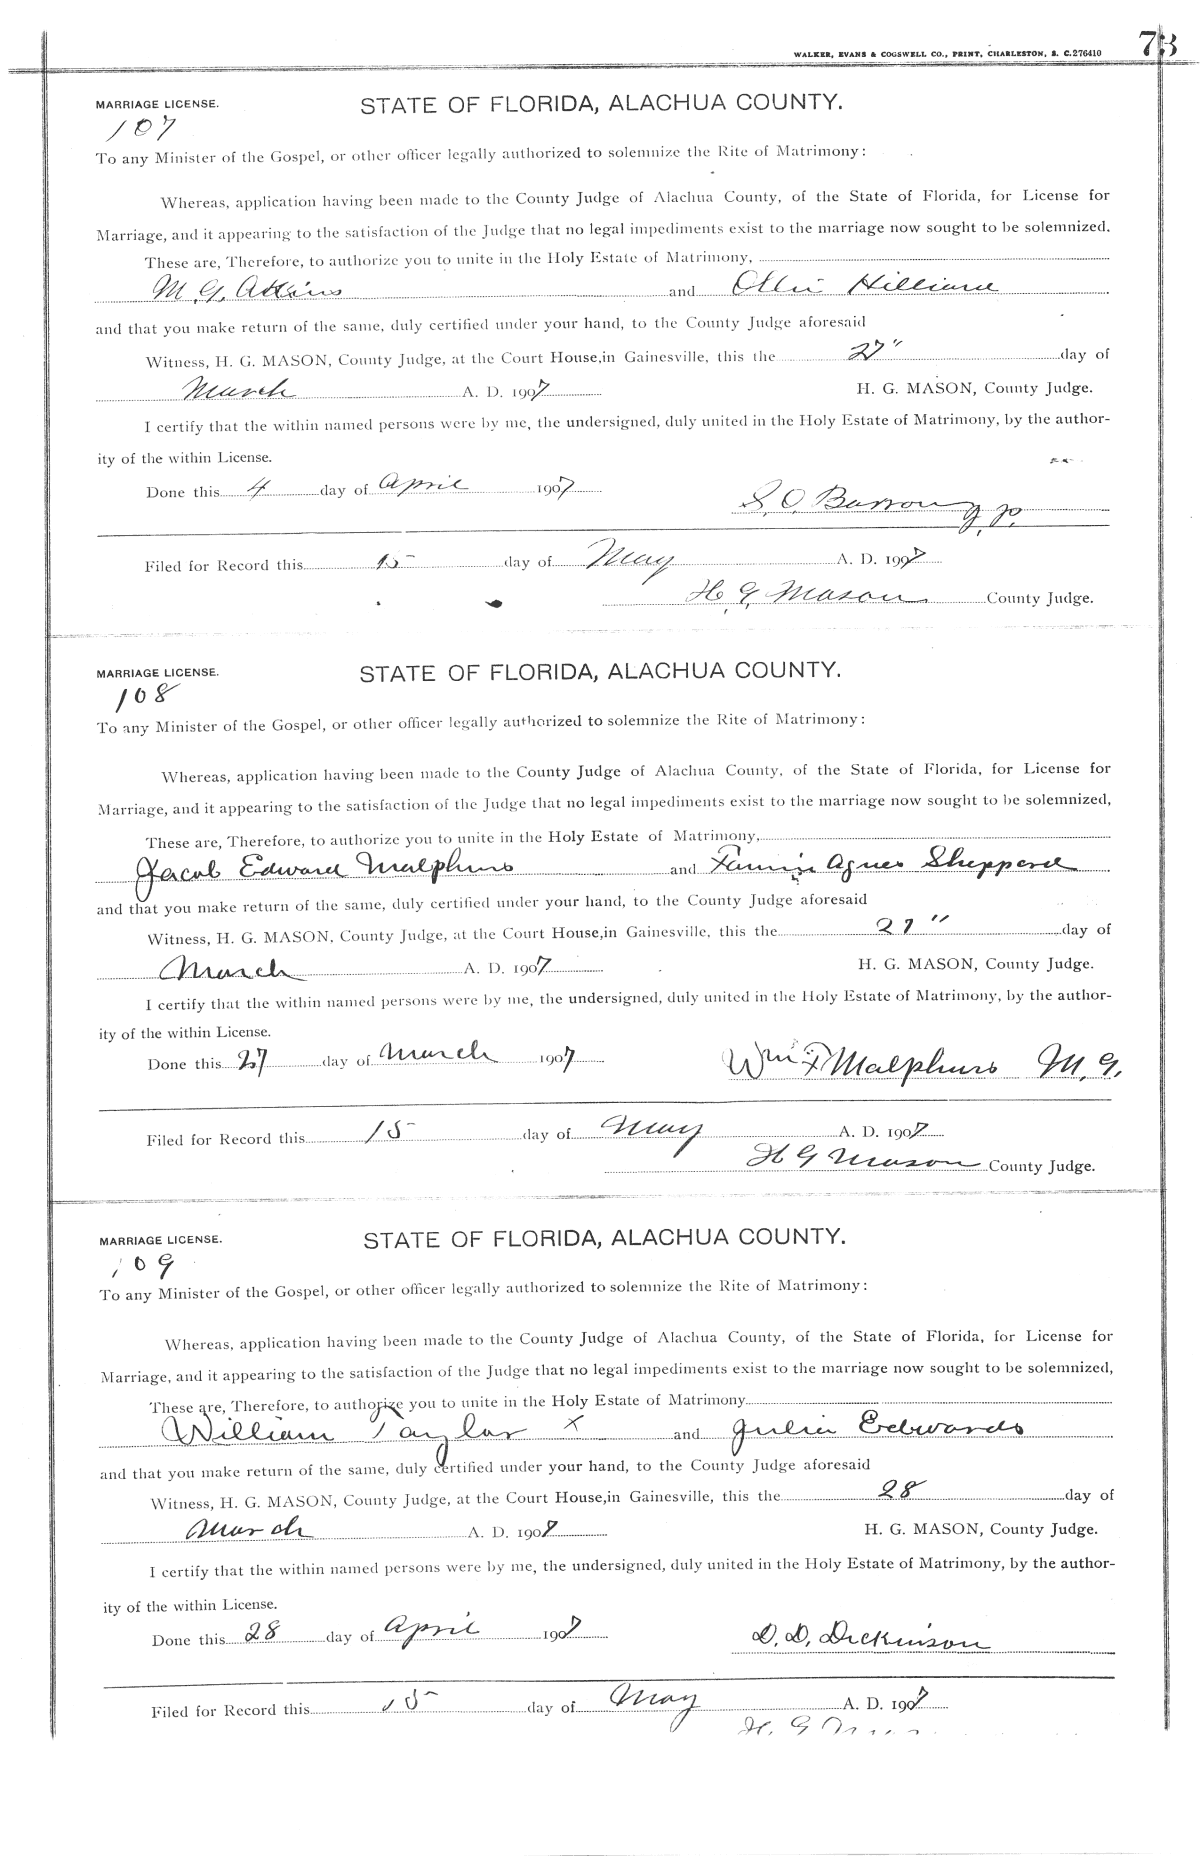 WALKER, EVANS & COGSWELL CO., PRINT, CHARLESTON, S. C. 276410
73
MARRIAGE LICENSE.
STATE OF FLORIDA, ALACHUA COUNTY.
107
To any Minister of the Gospel, or other officer legally authorized to solemnize the Rite of Matrimony:
Whereas, application having been made to the County Judge of Alachua County, of the State of Florida, for License for
Marriage, and it appearing to the satisfaction of the Judge that no legal impediments exist to the marriage now sought to be solemnized.
These are, Therefore, to authorize you to unite in the Holy Estate of Matrimony,
M. G. Atkins and Ollie Hilliard
and that you make return of the same, duly certified under your hand, to the County Judge aforesaid
Witness, H. G. MASON, County Judge, at the Court House, in Gainesville, this the 27" day of
March A. D. 1907 H. G. MASON, County Judge.
I certify that the within named persons were by me, the undersigned, duly united in the Holy Estate of Matrimony, by the author-
ity of the within License.
Done this 4 day of April 1907
S. O. Barrow J. P.
Filed for Record this 15 day of May A. D. 1907
H. G. Mason County Judge.
MARRIAGE LICENSE.
STATE OF FLORIDA, ALACHUA COUNTY.
108
To any Minister of the Gospel, or other officer legally authorized to solemnize the Rite of Matrimony:
Whereas, application having been made to the County Judge of Alachua County, of the State of Florida, for License for
Marriage, and it appearing to the satisfaction of the Judge that no legal impediments exist to the marriage now sought to be solemnized,
These are, Therefore, to authorize you to unite in the Holy Estate of Matrimony,
Jacob Edward Malphurs and Fannie Agnes Shepperd
and that you make return of the same, duly certified under your hand, to the County Judge aforesaid
Witness, H. G. MASON, County Judge, at the Court House, in Gainesville, this the 27" day of
March A. D. 1907 H. G. MASON, County Judge.
I certify that the within named persons were by me, the undersigned, duly united in the Holy Estate of Matrimony, by the author-
ity of the within License.
Done this 27 day of March 1907
Wm F Malphurs M. G.
Filed for Record this 15 day of May A. D. 1907
H G Mason County Judge.
MARRIAGE LICENSE.
STATE OF FLORIDA, ALACHUA COUNTY.
109
To any Minister of the Gospel, or other officer legally authorized to solemnize the Rite of Matrimony:
Whereas, application having been made to the County Judge of Alachua County, of the State of Florida, for License for
Marriage, and it appearing to the satisfaction of the Judge that no legal impediments exist to the marriage now sought to be solemnized,
These are, Therefore, to authorize you to unite in the Holy Estate of Matrimony
William Taylor x and Julia Edwards
and that you make return of the same, duly certified under your hand, to the County Judge aforesaid
Witness, H. G. MASON, County Judge, at the Court House, in Gainesville, this the 28 day of
March A. D. 1907 H. G. MASON, County Judge.
I certify that the within named persons were by me, the undersigned, duly united in the Holy Estate of Matrimony, by the author-
ity of the within License.
Done this 28 day of April 1907
D. D. Dickinson
Filed for Record this 15 day of May A. D. 1907
H. G